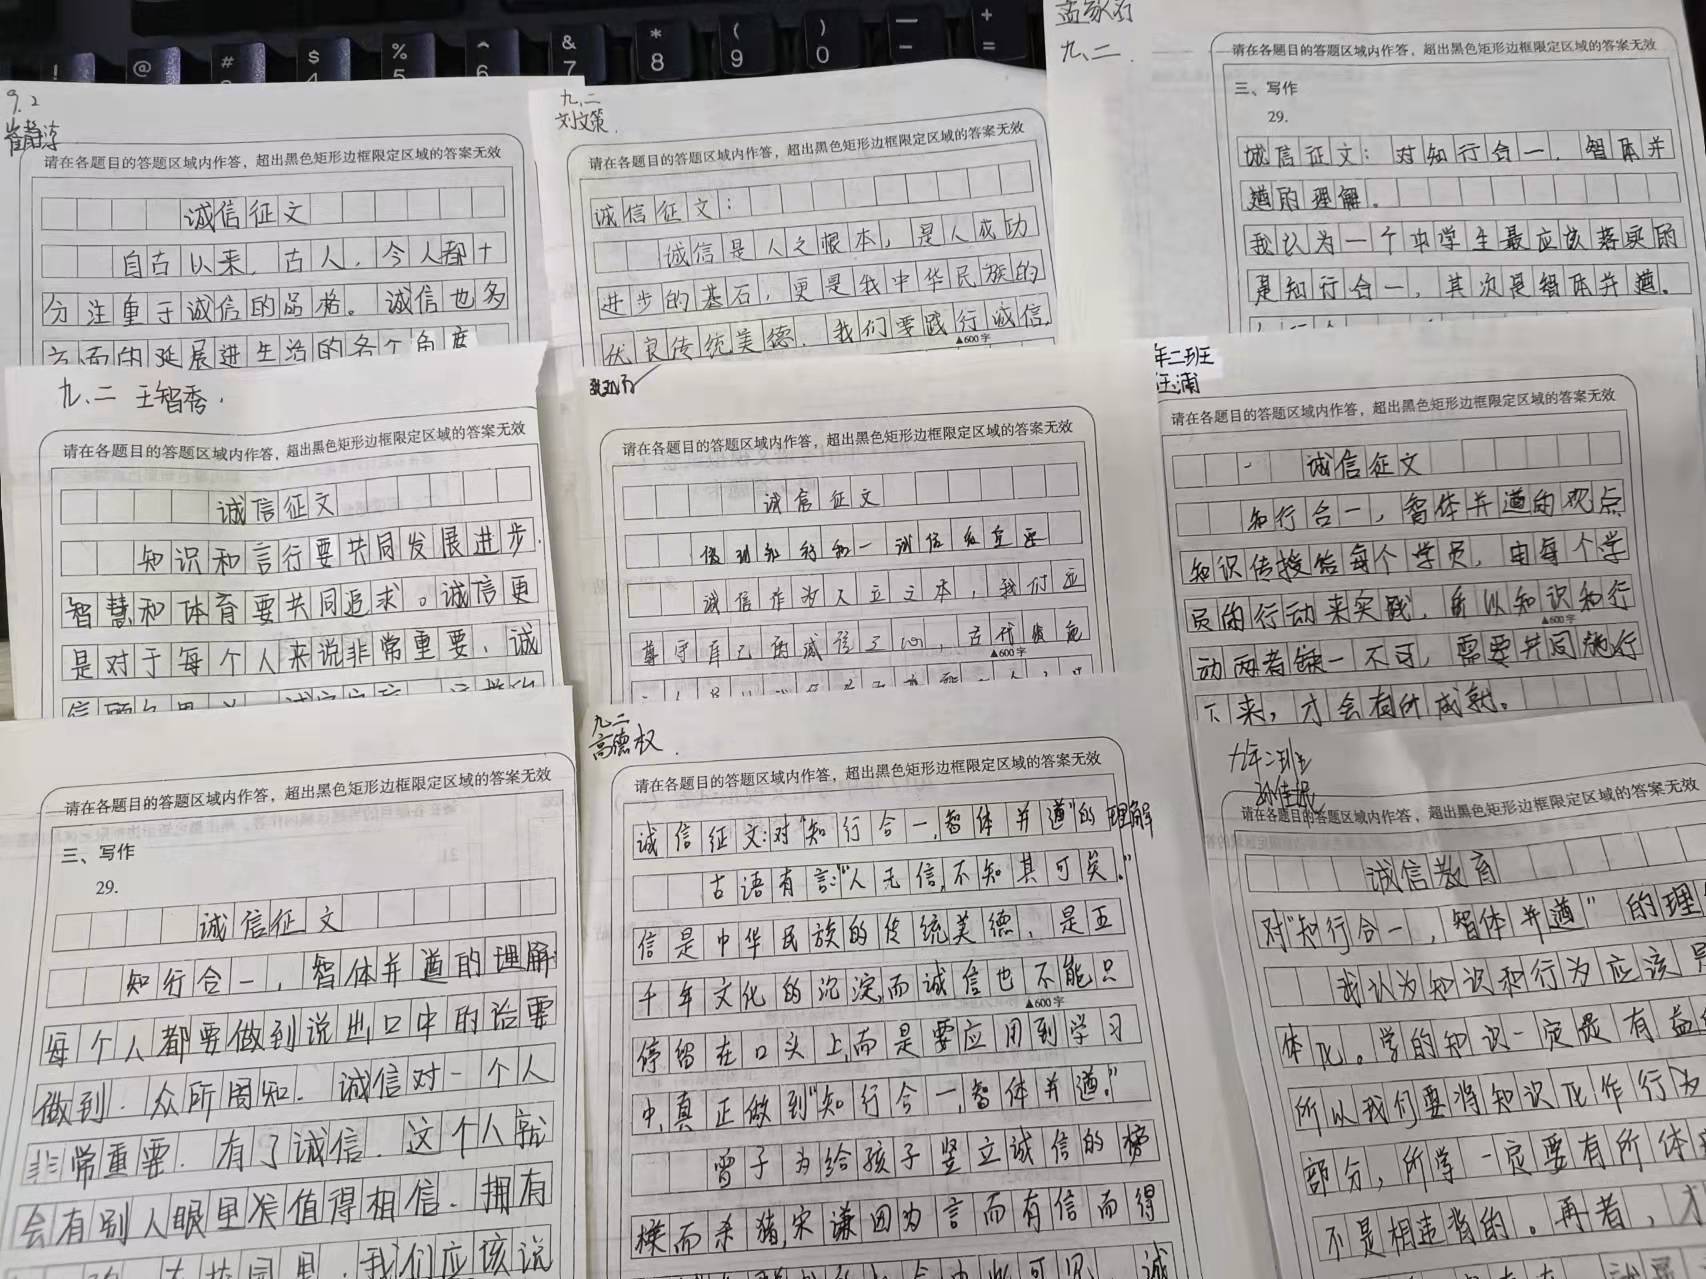 ! @ # $ % ^ & * ( ) — +
4 5 6 7 8 9 0 - =
9.2
请在各题目的答题区域内作答，超出黑色矩形边框限定区域的答案无效
诚信征文
自古以来，古人，今人都十
分注重于诚信的品格。诚信也多
方面的延展进生活的各个角度
九.二
刘文策.
请在各题目的答题区域内作答，超出黑色矩形边框限定区域的答案无效
诚信征文：
诚信是人之根本，是人成功
进步的基石，更是我中华民族的
优良传统美德.我们要践行诚信,
▲600字
九.二.
请在各题目的答题区域内作答，超出黑色矩形边框限定区域的答案无效
三、写作
29.
诚信征文：对知行合一，智体并
遒的理解。
我认为一个中学生最应该落实的
是知行合一，其次是智体并遒。
九.二 王智秀.
请在各题目的答题区域内作答，超出黑色矩形边框限定区域的答案无效
诚信征文
知识和言行要共同发展进步.
智慧和体育要共同追求。诚信更
是对于每个人来说非常重要，诚
请在各题目的答题区域内作答，超出黑色矩形边框限定区域的答案无效
诚信征文
诚信作为人立之本，我们应
▲600字
年二班王
请在各题目的答题区域内作答，超出黑色矩形边框限定区域的答案无效
诚信征文
知行合一，智体并遒的观点
知识传授给每个学员，由每个学
员的行动来实践，所以知识和行
▲600字
动两者缺一不可，需要共同施行
下来，才会有所成就。
请在各题目的答题区域内作答，超出黑色矩形边框限定区域的答案无效
三、写作
29.
诚信征文
知行合一，智体并遒的理解
每个人都要做到说出口中的话要
做到.众所周知.诚信对一个人
非常重要.有了诚信.这个人就
会有别人眼里准值得相信.拥有
我们应该说
九.二
高德权.
请在各题目的答题区域内作答，超出黑色矩形边框限定区域的答案无效
诚信征文:对"知行合一,智体并遒"的理解
古语有言:"人无信,不知其可矣."
信是中华民族的传统美德，是五
千年文化的沉淀,而诚信也不能只
▲600字
停留在口头上,而是要应用到学习
中,真正做到"知行合一,智体并遒."
曾子为给孩子竖立诚信的榜
样而杀猪,宋谦因为言而有信而得
九年二班
孙佳岷
请在各题目的答题区域内作答，超出黑色矩形边框限定区域的答案无效
诚信教育
对"知行合一，智体并遒"的理
我认为知识和行为应该是
体化。学的知识一定是有益
所以我们要将知识化作行为
部分，所学一定要有所体
不是相违背的。再者，才